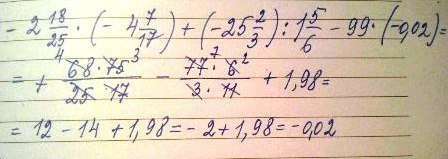 - 2 18/25 · (- 4 7/17) + (-25 2/3) : 1 5/6 - 99 · (-0,02) =
= + 68⁴ · 75³ / 25 · 17 - 77⁷ · 6² / 3 · 11 + 1,98 =
= 12 - 14 + 1,98 = - 2 + 1,98 = - 0,02